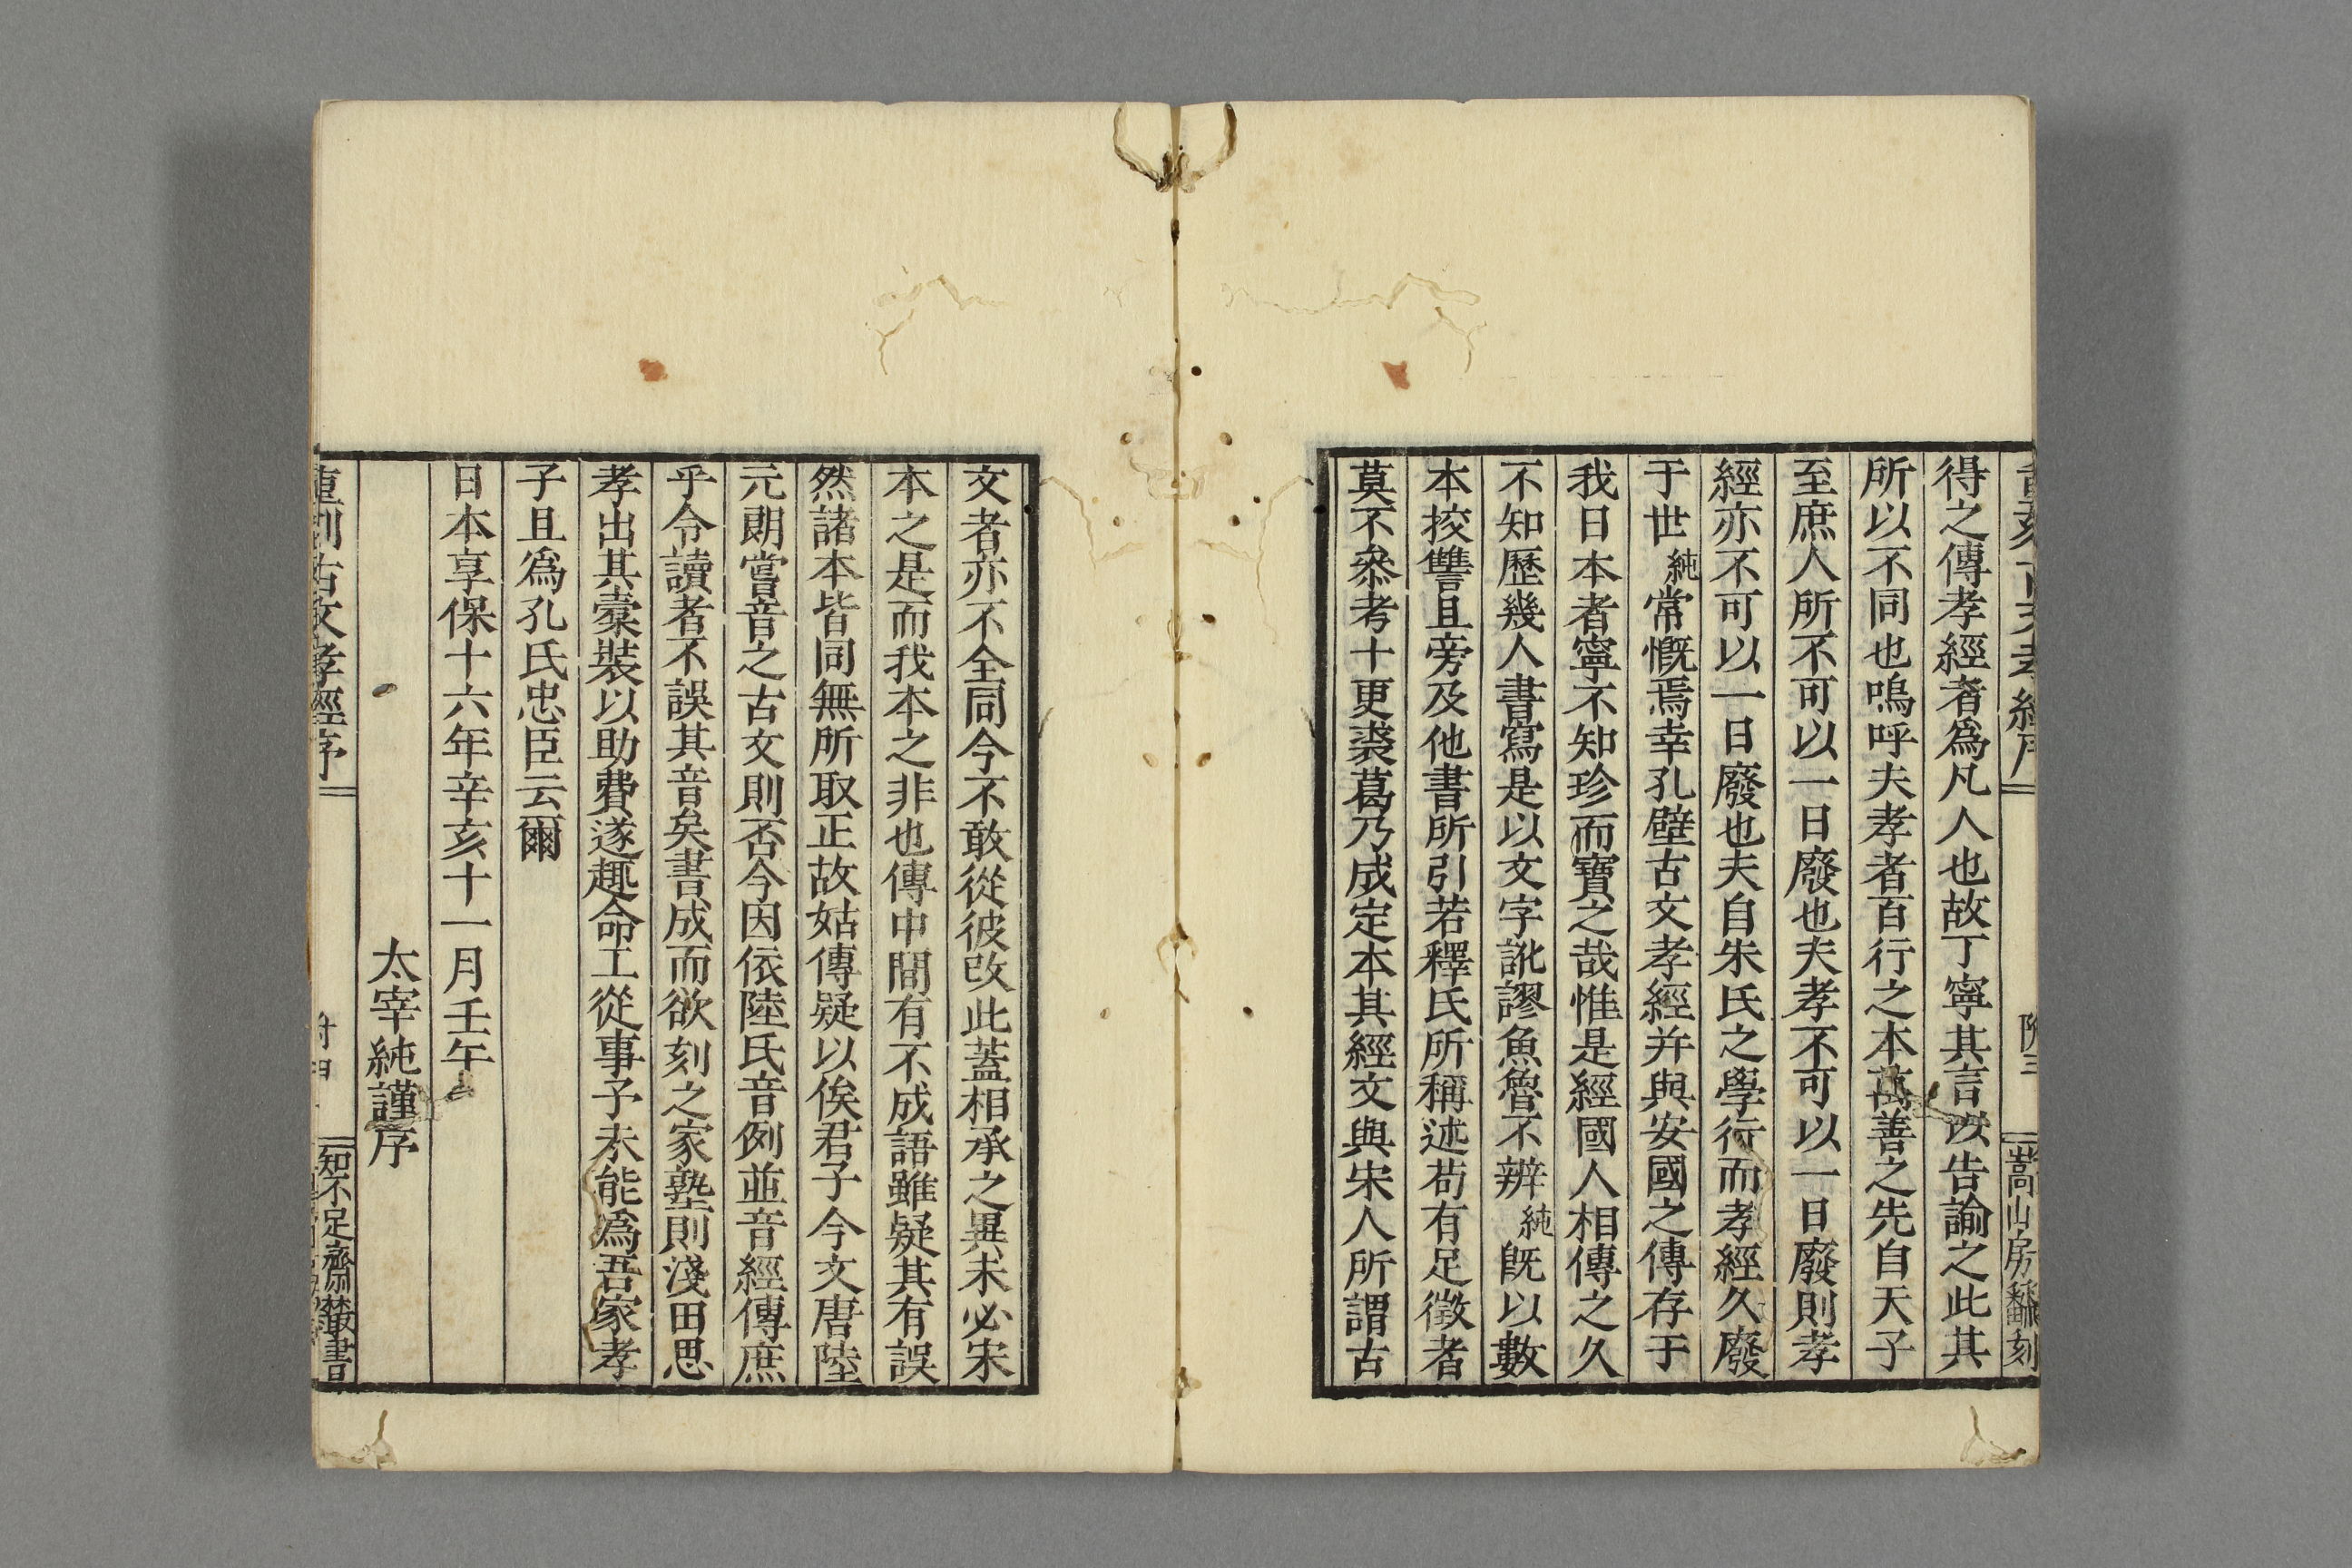 得之傳孝經者爲凡人也故丁寧其言以告諭之此其
所以不同也嗚呼夫孝者百行之本萬善之先自天子
至庶人所不可以一日廢也夫孝不可以一日廢則孝
經亦不可以一日廢也夫自朱氏之學行而孝經久廢
于世純常慨焉幸孔壁古文孝經并與安國之傳存于
我日本者寧不知珍而寶之哉惟是經國人相傳之久
不知歷幾人書寫是以文字訛謬魚魯不辨純旣以數
本挍讐且旁及他書所引若釋氏所稱述苟有足徵者
莫不參考十更裘葛乃成定本其經文與宋人所謂古
文者亦不全同今不敢從彼改此蓋相承之異未必宋
本之是而我本之非也傳中間有不成語雖疑其有誤
然諸本皆同無所取正故姑傳疑以俟君子今文唐陸
元朗嘗音之古文則否今因依陸氏音例並音經傳庶
乎令讀者不誤其音矣書成而欲刻之家塾則淺田思
孝出其橐裝以助費遂趣命工從事予未能爲吾家孝
子且爲孔氏忠臣云爾
日本享保十六年辛亥十一月壬午
太宰純謹序
重刻古文孝經序
知不足齋叢書